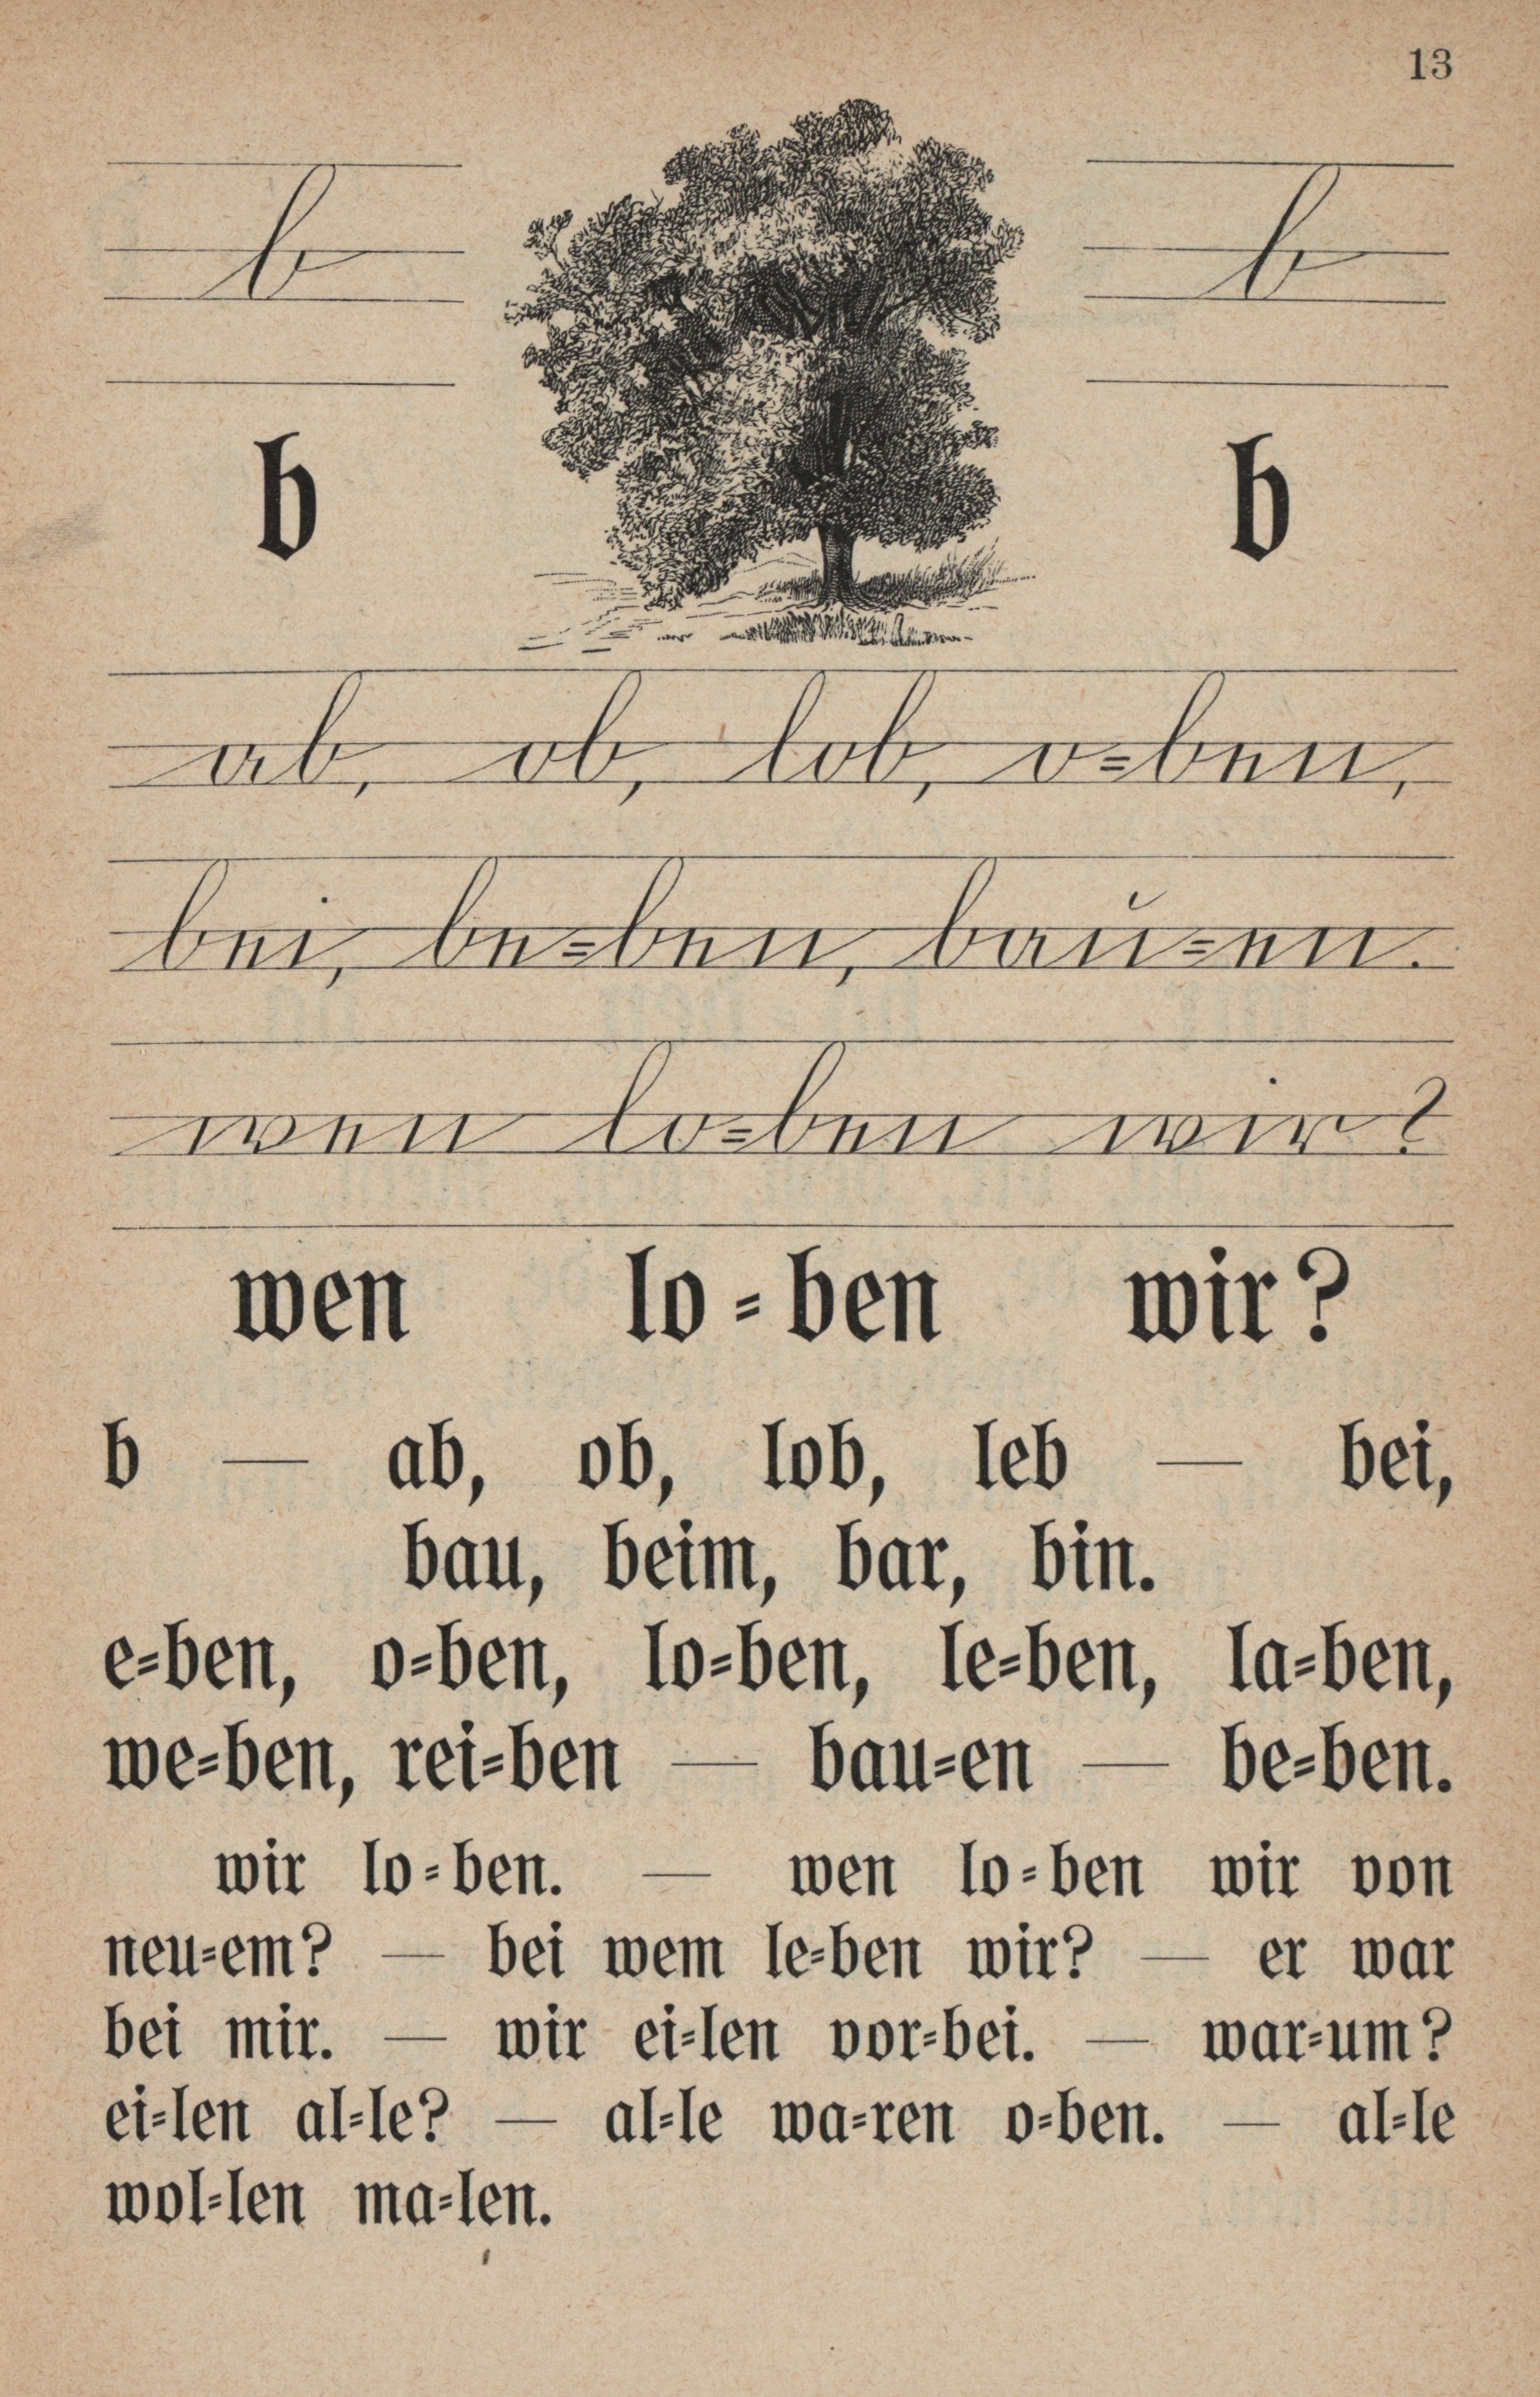 13
b b
b b
ab, ob, lob, o=ben,
bei, be=ben, bau=en.
wen lo=ben wir?
wen lo=ben wir?
b — ab, ob, lob, leb — bei,
bau, beim, bar, bin.
e=ben, o=ben, lo=ben, le=ben, la=ben,
we=ben, rei=ben — bau=en — be=ben.
wir lo=ben. — wen lo=ben wir von
neu=em? — bei wem le=ben wir? — er war
bei mir. — wir ei=len vor=bei. — war=um?
ei=len al=le? — al=le wa=ren o=ben. — al=le
wol=len ma=len.